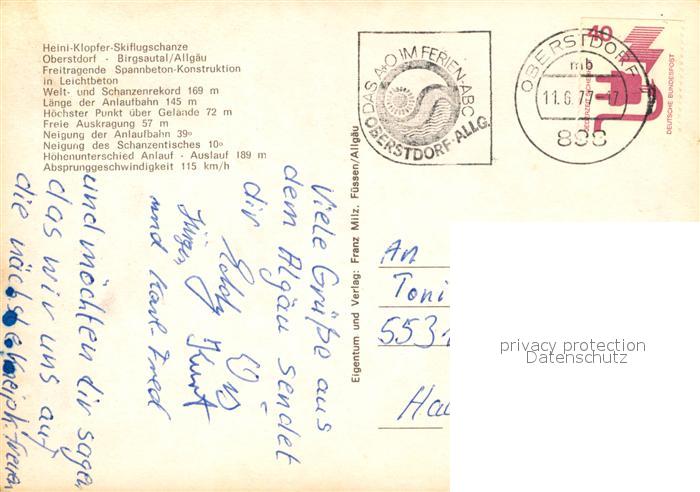 Heini-Klopfer-Skiflugschanze
Oberstdorf - Birgsautal/Allgäu
Freitragende Spannbeton-Konstruktion
in Leichtbeton
Welt- und Schanzenrekord 169 m
Länge der Anlaufbahn 145 m
Höchster Punkt über Gelände 72 m
Freie Auskragung 57 m
Neigung der Anlaufbahn 39º
Neigung des Schanzentisches 10º
Höhenunterschied Anlauf - Auslauf 189 m
Absprunggeschwindigkeit 115 km/h
DAS A+O IM FERIEN-ABC
OBERSTDORF-ALLG.
OBERSTDORF
mb
11.6.77-17
898
40
DEUTSCHE BUNDESPOST
Eigentum und Verlag: Franz Milz, Füssen/Allgäu
Viele Grüße aus
dem Algäu sendet
dir
Kurt
Jürgen,
und Karl-Fred
und möchten dir sagen
das wir uns auf
die nächste
An
Toni
553
Ha
privacy protection
Datenschutz